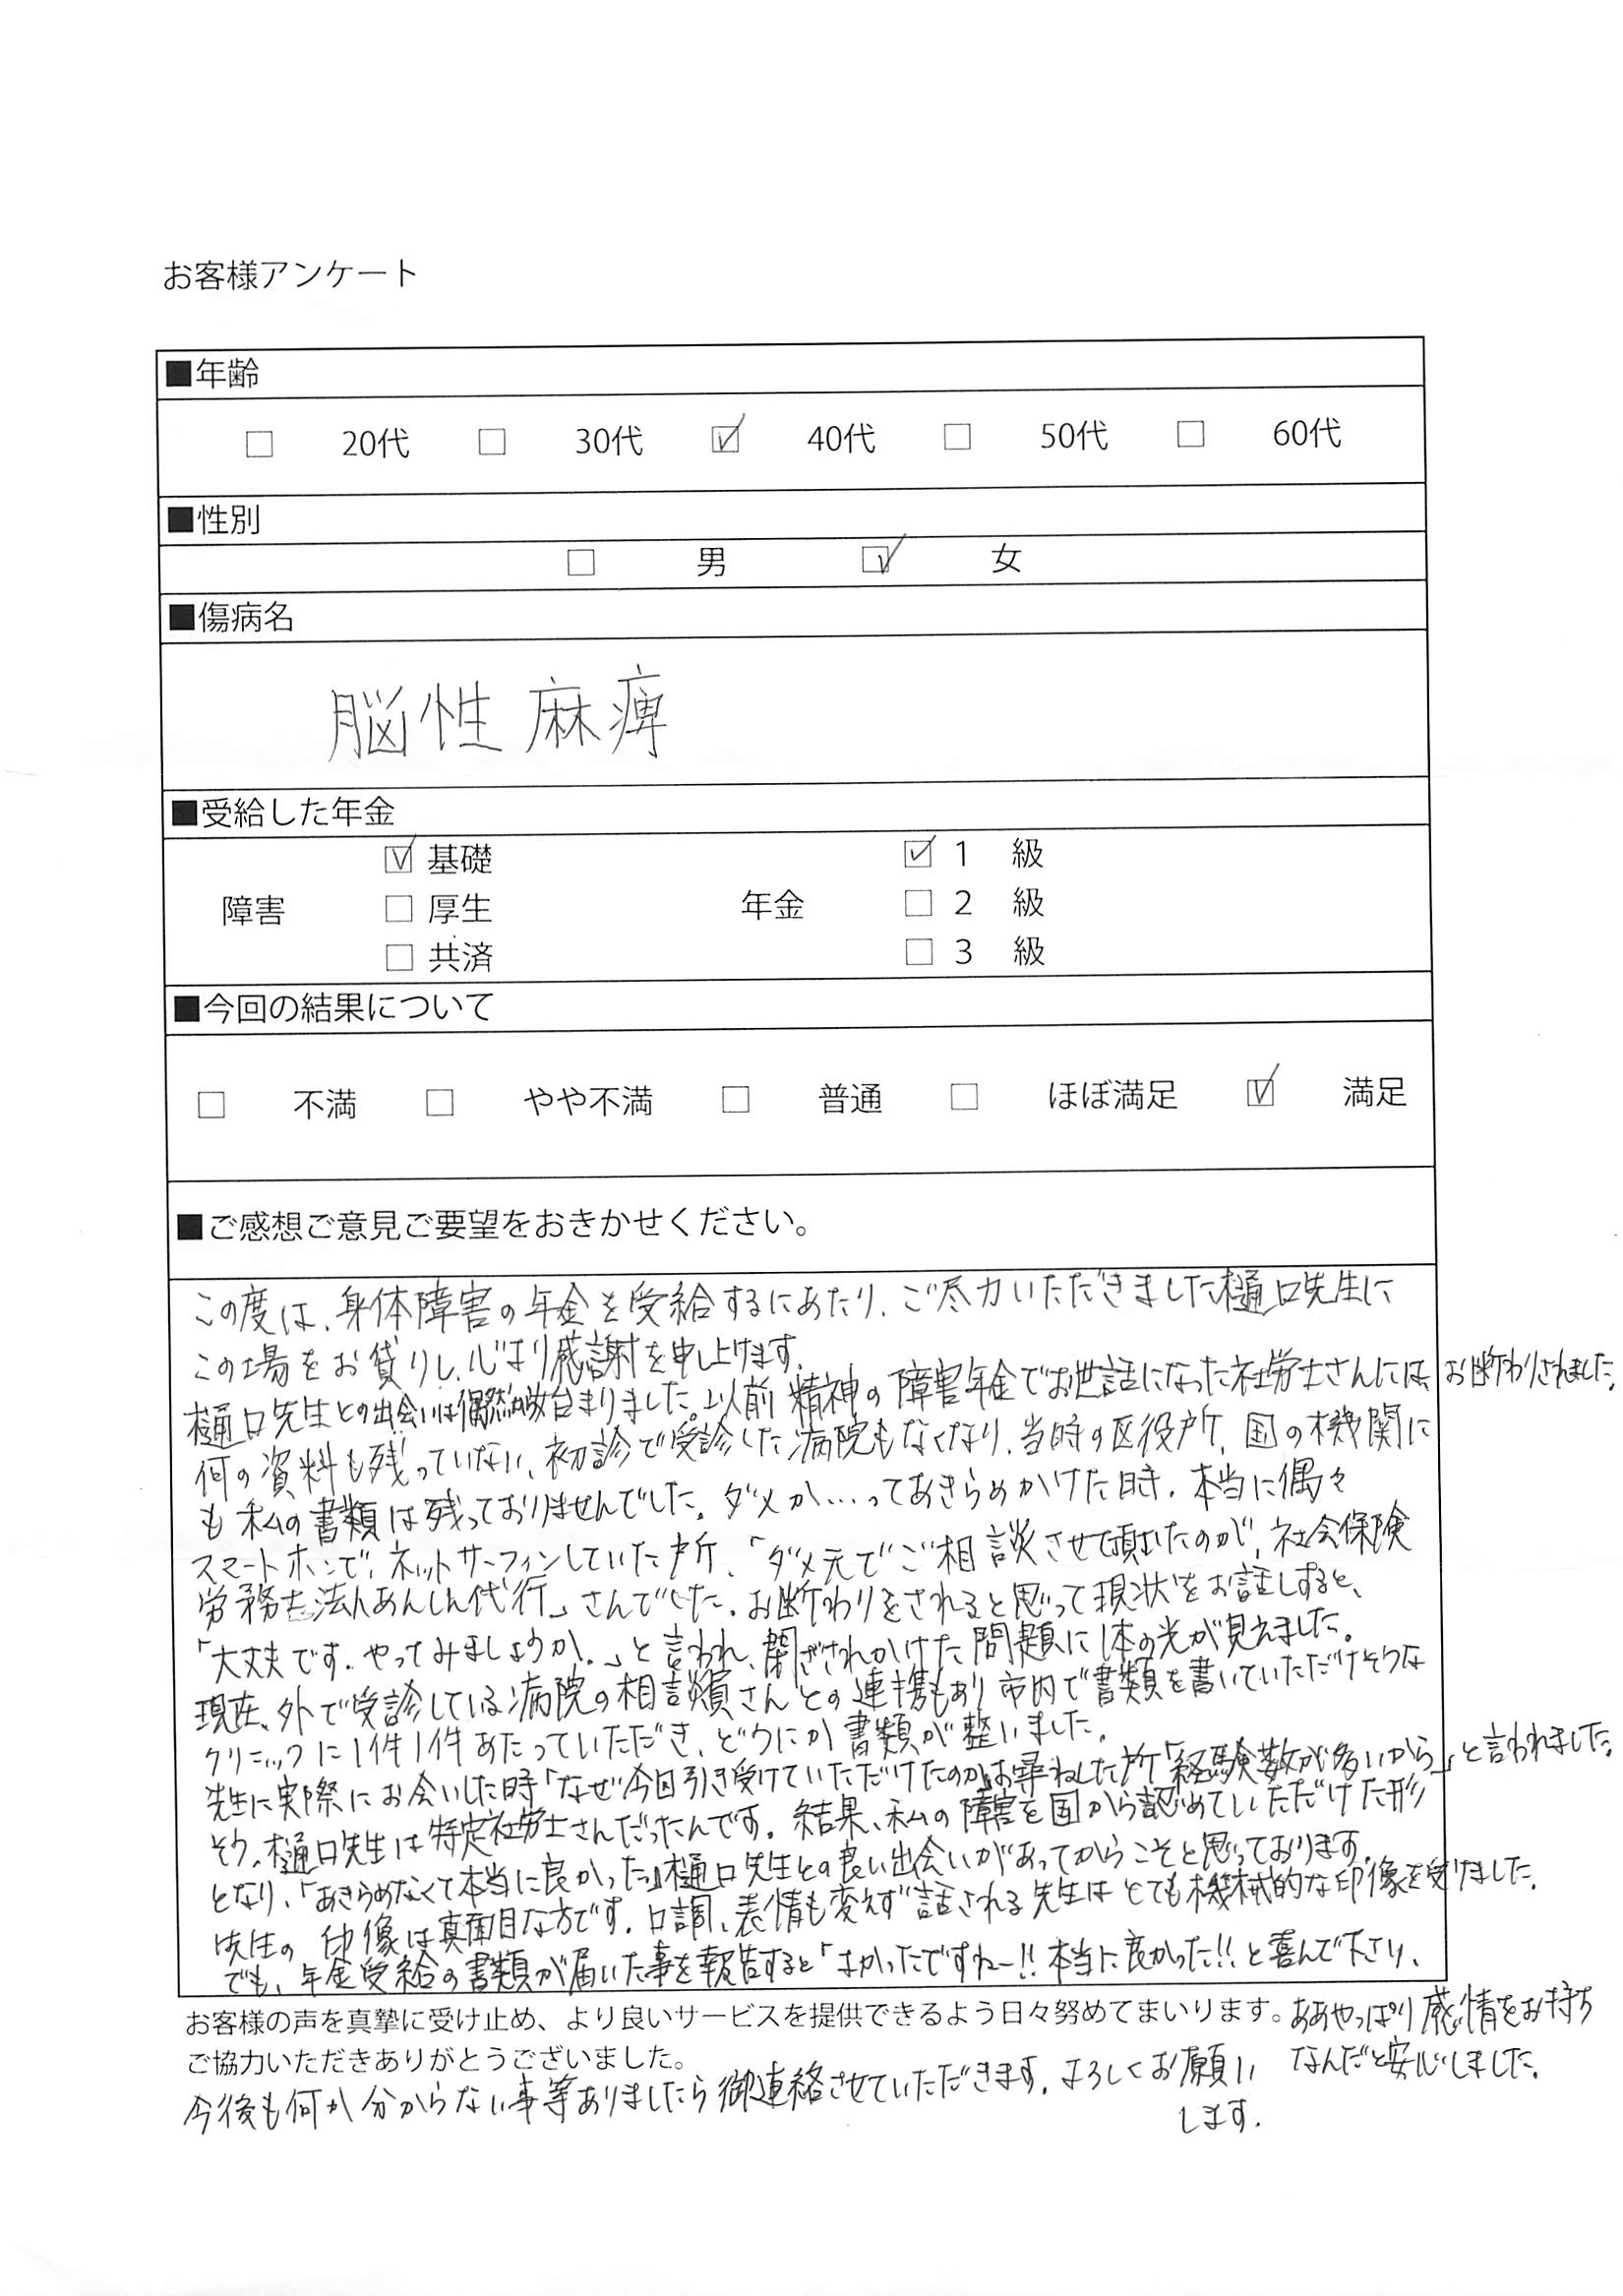 お客様アンケート
■年齢
□ 20代 □ 30代 ☑ 40代 □ 50代 □ 60代
■性別
□ 男 ☑ 女
■傷病名
脳性麻痺
■受給した年金
障害 ☑ 基礎 □ 厚生 □ 共済 年金 ☑ 1 級 □ 2 級 □ 3 級
■今回の結果について
□ 不満 □ やや不満 □ 普通 □ ほぼ満足 ☑ 満足
■ご感想ご意見ご要望をおきかせください。
この度は、身体障害の年金を受給するにあたり、ご尽力いただきました樋口先生に
この場をお貸りし、心より感謝を申し上げます。
樋口先生との出会いは偶然が始まりました。以前 精神の障害年金でお世話になった社労士さんには、お断わりされました。
何の資料も残っていない、初診で受診した病院もなくなり、当時の区役所、国の機関に
も私の書類は残っておりませんでした。ダメか…ってあきらめかけた時、本当に偶々
スマートホンで、ネットサーフィンしていた所、「ダメ元でご相談させて頂いたのが、社会保険
労務士法人あんしん代行」さんでした。お断わりをされると思って現状をお話しすると、
「大丈夫です。やってみましょうか。」と言われ、閉ざされかけた問題に1本の光が見えました。
現在、外で受診している病院の相談員さんとの連携もあり市内で書類を書いていただけそうな
クリニックに1件1件あたっていただき、どうにか書類が整いました。
先生に実際にお会いした時「なぜ今回引き受けていただけたのか」お尋ねした所「経験数が多いから」と言われました。
そう、樋口先生は特定社労士さんだったんです。結果、私の障害を国から認めていただけた形
となり、「あきらめなくて本当に良かった」樋口先生との良い出会いがあってからこそと思っております。
先生の 印像は真面目な方です。口調、表情も変えず話される先生はとても機械的な印像を受けました。
でも、年金受給の書類が届いた事を報告すると「よかったですねー!!本当に良かった!!と喜んで下さり、
お客様の声を真摯に受け止め、より良いサービスを提供できるよう日々努めてまいります。
ああやっぱり感情をお持ち
ご協力いただきありがとうございました。
なんだと安心しました。
今後も何か分からない事等ありましたら御連絡させていただきます。よろしくお願い
します。